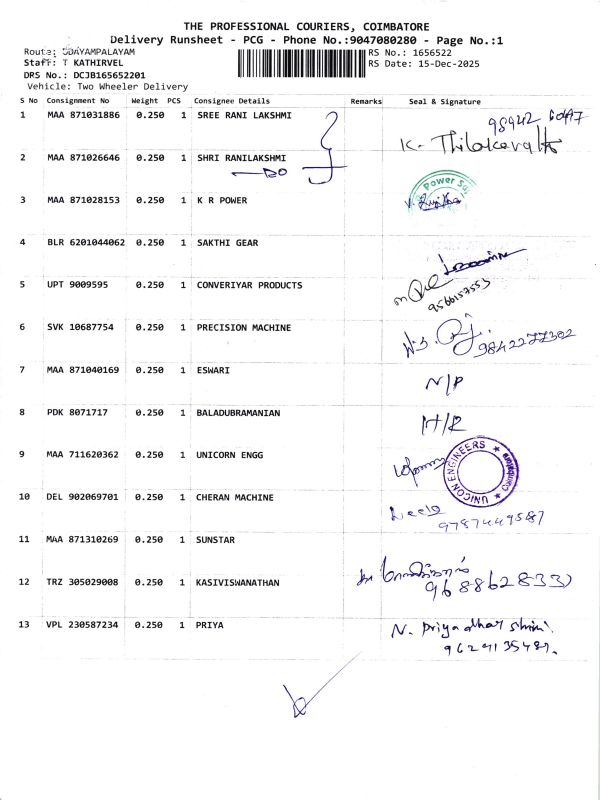 THE PROFESSIONAL COURIERS, COIMBATORE
Delivery Runsheet - PCG - Phone No.:9047080280 - Page No.:1
Route: UDAYAMPALAYAM
RS No.: 1656522
Staff: T KATHIRVEL
RS Date: 15-Dec-2025
DRS No.: DCJB165652201
Vehicle: Two Wheeler Delivery
S No Consignment No Weight PCS Consignee Details Remarks Seal & Signature
1 MAA 871031886 0.250 1 SREE RANI LAKSHMI
K. Thilakavathi
2 MAA 871026646 0.250 1 SHRI RANILAKSHMI
DO
Power
3 MAA 871028153 0.250 1 K R POWER
4 BLR 6201044062 0.250 1 SAKTHI GEAR
5 UPT 9009595 0.250 1 CONVERIYAR PRODUCTS
9566157553
6 SVK 10687754 0.250 1 PRECISION MACHINE
9842277302
7 MAA 871040169 0.250 1 ESWARI
N/P
8 PDK 8071717 0.250 1 BALADUBRAMANIAN
H/R
9 MAA 711620362 0.250 1 UNICORN ENGG
UNICON ENGINEERS
10 DEL 902069701 0.250 1 CHERAN MACHINE
9787449587
11 MAA 871310269 0.250 1 SUNSTAR
12 TRZ 305029008 0.250 1 KASIVISWANATHAN
9688628331
13 VPL 230587234 0.250 1 PRIYA
N. Priyadharshini.